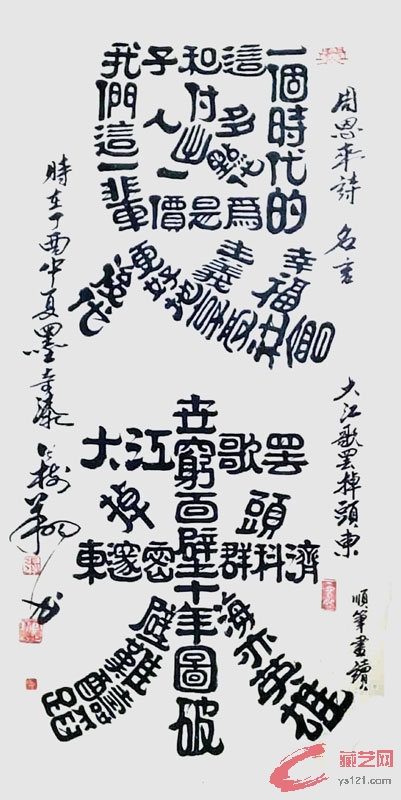 周恩來詩 名言
大江歌罷掉頭東
順筆畫讀
我們這一輩
子和這
一個時代的
人多
付出一點代
價是為
後代
更好地
享受社會
主義
幸福
大江歌罷
掉頭
東邃密群科濟
世窮面壁十年圖破
壁難酬蹈
海亦英雄
時在丁酉仲夏墨奇
藏艺网
ys121.com